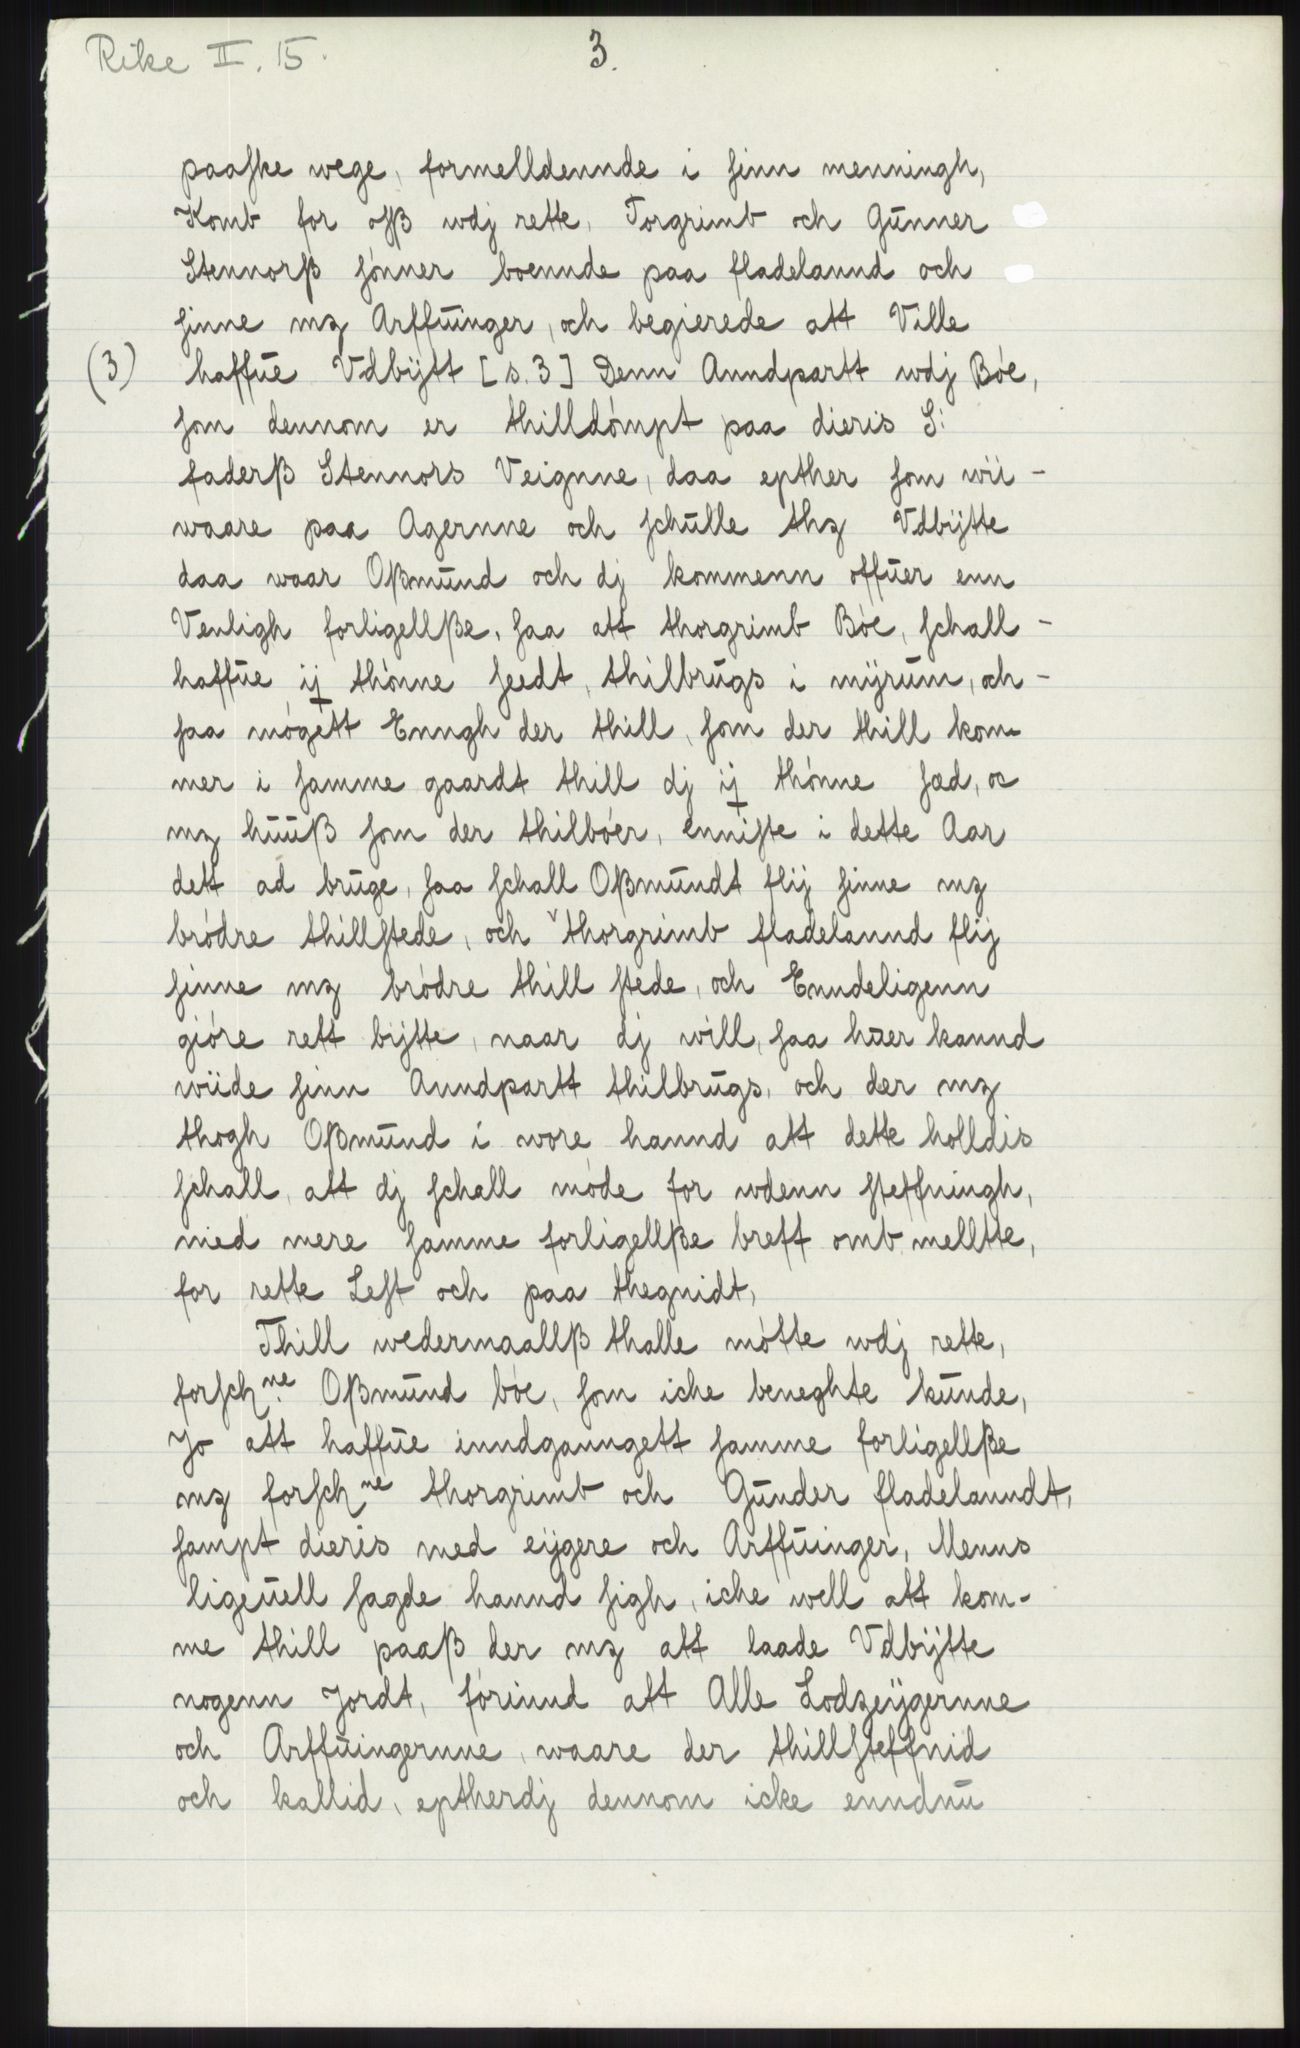 Rike II. 15.
3.
paaske wege, formelldennde i sinn menningh,
Komb for osß wdj rette, Torgrimb och Gunner
Stennorß sønner boennde paa fladelannd och
sinne mz Arffuinger, och begierede att Ville
(3) haffue Vdbÿtt [s. 3] Denn Anndpartt wdj Bóe,
som dennom er thilldómpt paa dieris S:
faderß Stennors Veignne, daa epther som wii -
waare paa Agernne och schulle thz Vdbÿtte
daa waar Oßmund och dj kommenn offuer enn
Venligh forligellße, saa att thorgrimb Bóe, schall -
haffue ij thónne seedt, thilbrugs i mÿrum, och -
saa mógett Enngh der thill, som der thill kom-
mer i samme gaardt thill dj ij thónne sæd, oc
mz huuß som der thilbóer, enniste i dette Aar
dett ad bruge, saa schall Oßmundt flij sinne mz
bródre thillstede, och thorgrimb fladelannd flij
sinne mz bródre thill stede, och Enndeligenn
gióre rett bÿtte, naar dj will, saa huer kannd
wiide sinn Anndpartt thilbrugs, och der mz
thogh Oßmund i wore hannd att dette holldis
schall, att dj schall móde for wdenn steffningh,
med mere samme forligellße breff omb melltte,
for rette Lest och paa thegnidt,
Thill wedermaallß thalle mótte wdj rette,
forschne Oßmund bóe, som iche beneghte kunde,
Jo att haffue inndganngett samme forligellße
mz forschne thorgrimb och Gunder fladelanndt,
sampt dieris med eÿgere och Arffuinger, Menns
ligeuell sagde hannd sigh, iche well att kom-
me thill paaß der mz att laade Vdbÿtte
nogenn Jordt, fórinnd att Alle Lodzeÿgernne
och Arffuingernne, waare der thillsteffnid
och kallid, eptherdj dennom icke enndnu